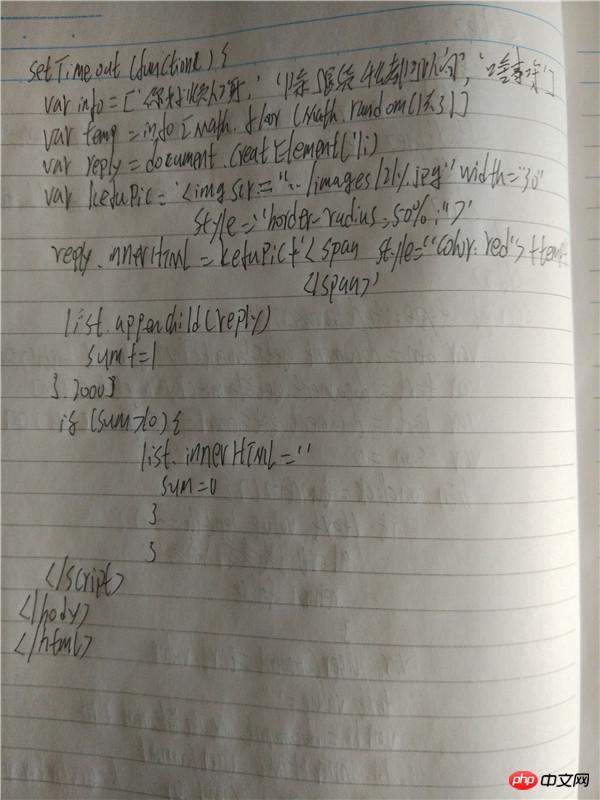 setTimeout(function(){
var info=['你好
var temp=info[Math.floor(Math.random()*3)]
var reply=document.creatElement('li)
var kefuPic='<img scr="../images/2.jpg" width="30"
style="border-radius:50%;">'
reply.innerHTML=kefuPic+'<span style="color:red">'+temp+
</span>'
list.appenchild(reply)
sum+=1
},2000)
if (sum>10){
list.innerHTML=''
sum=0
}
}
</script>
</body>
</html>
php 中文网